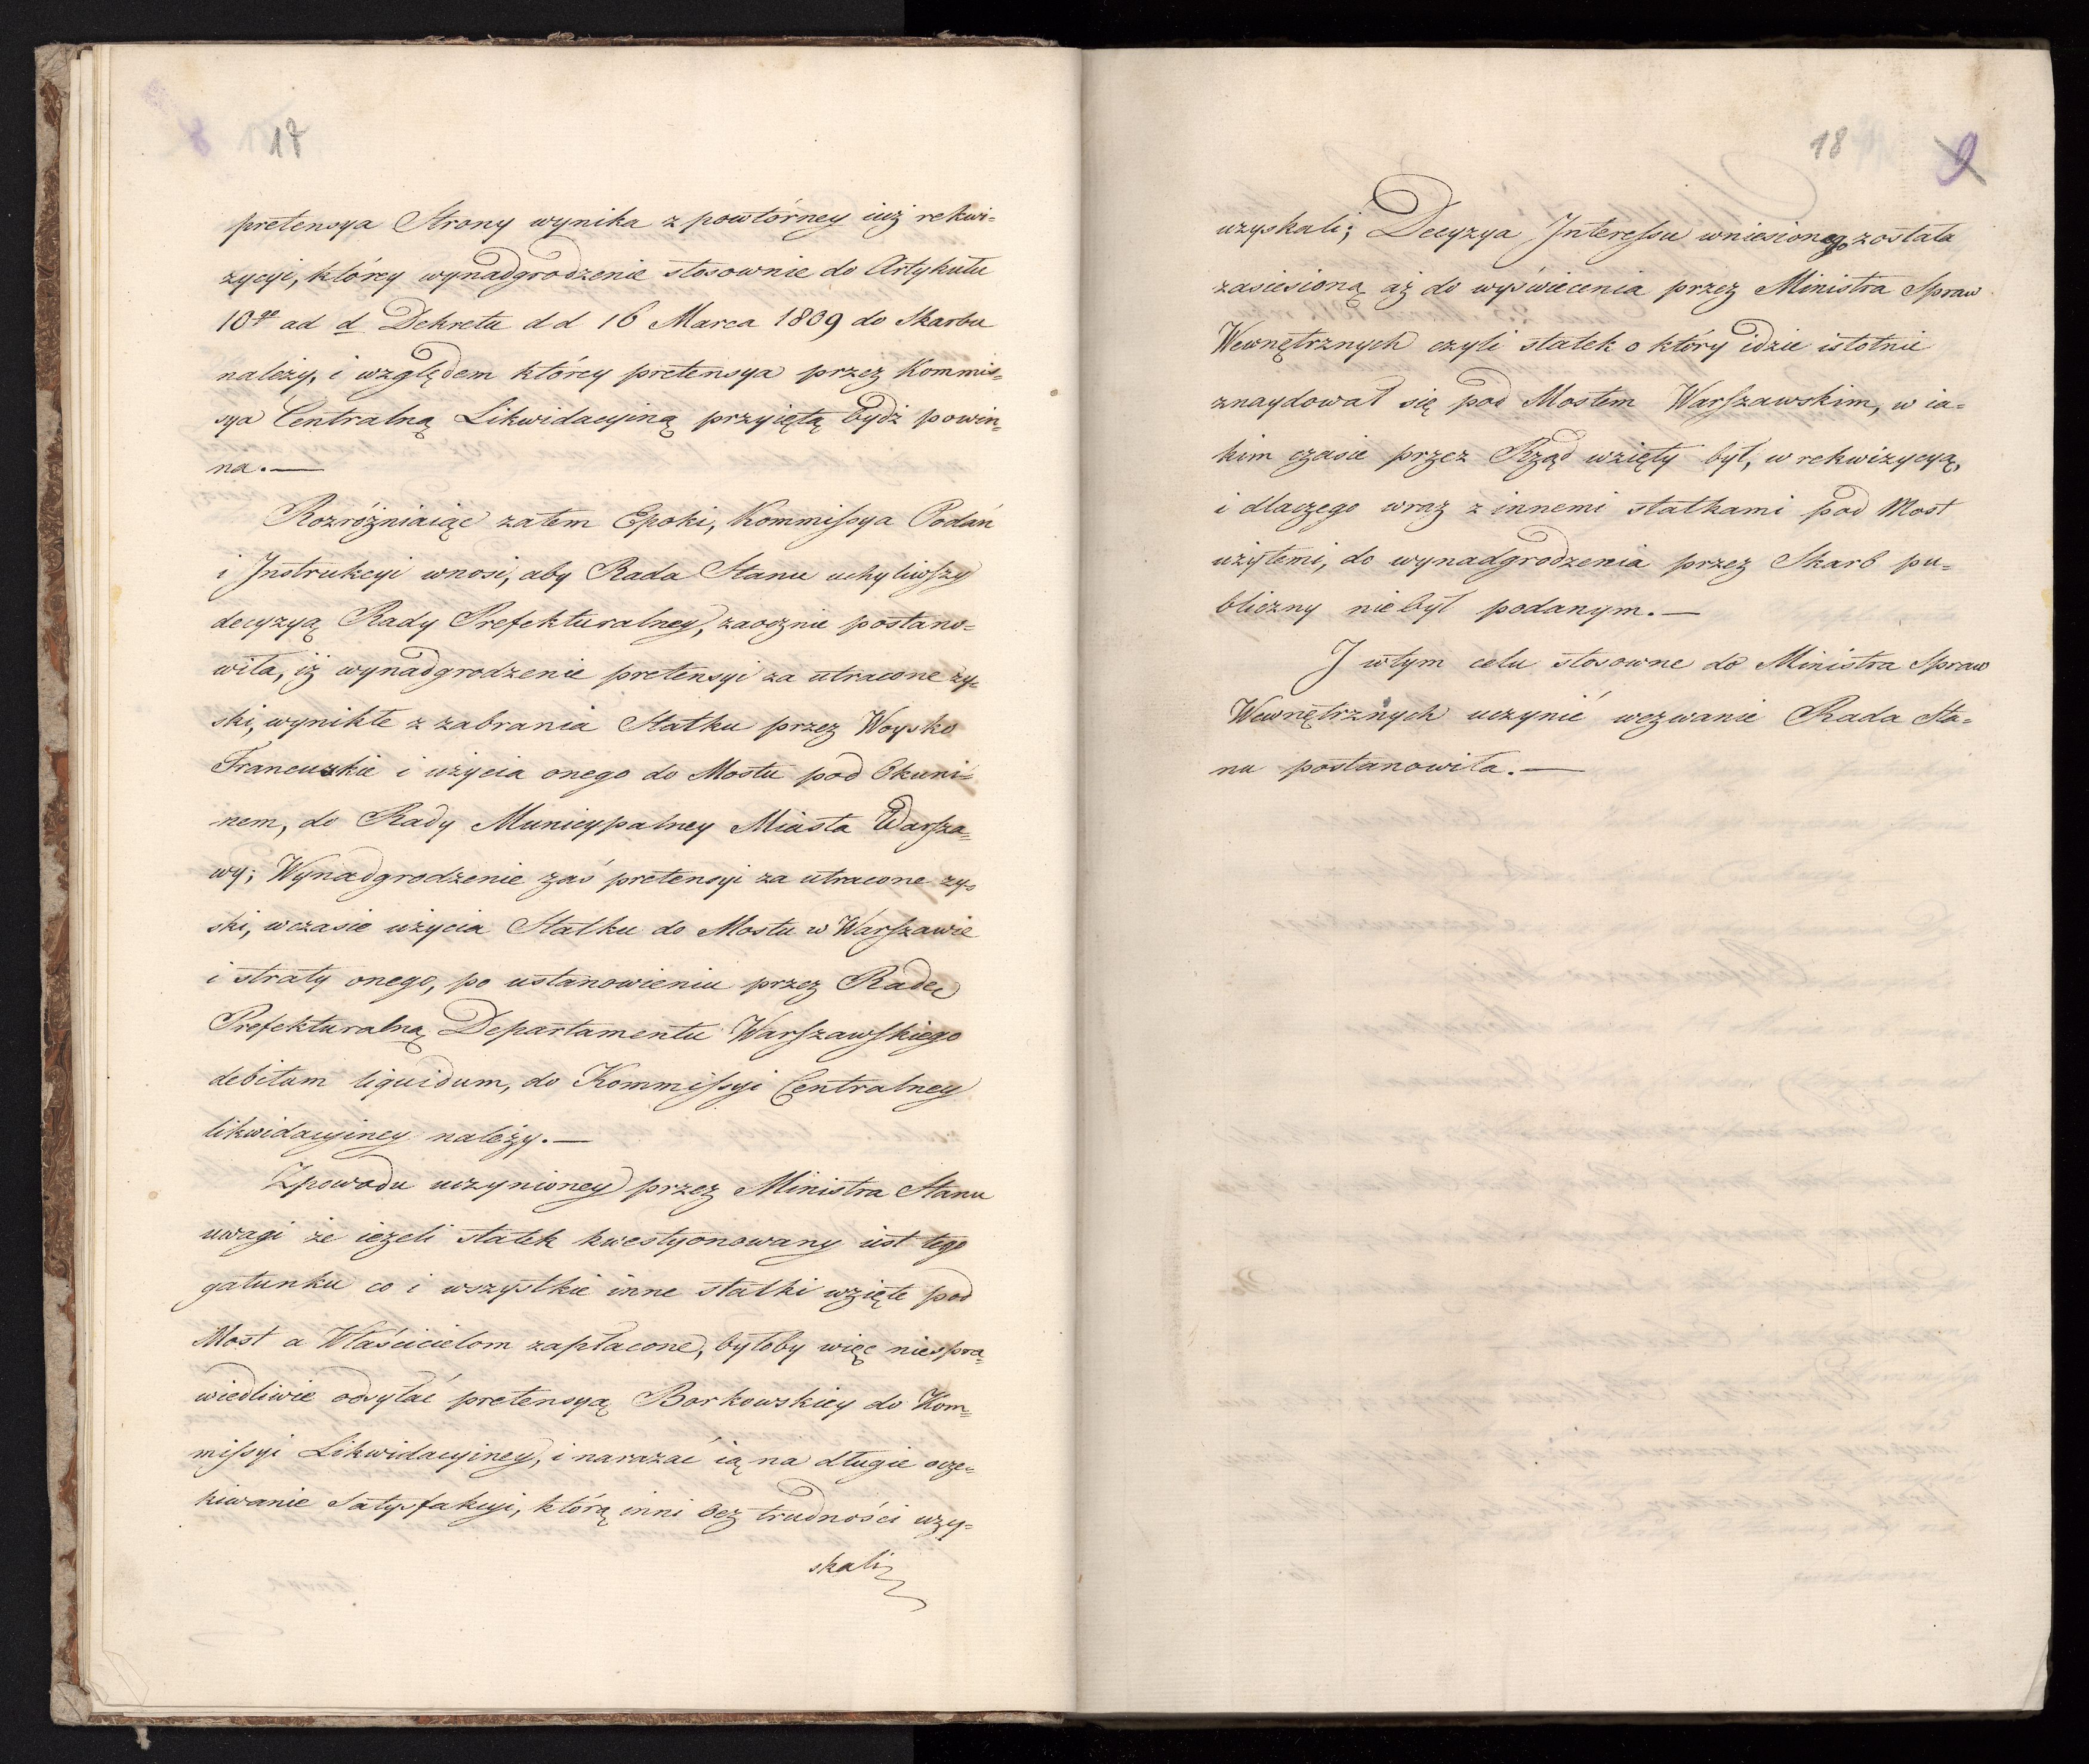 17
pretensya Strony wynika z powtórney iuż rekwi=
zycyi, którey wynadgrodzenie stosownie do Artykułu
10go ad d Dekretu d d 16 Marca 1809 do Skarbu
należy, i względem którey pretensya przez Kommis=
sya Centralną Likwidacyiną przyiętą bydź powin=
na.—
Rozróżniaiąc zatem Epoki, Kommissya Podań
i Instrukcyi wnosi, aby Rada Stanu uchyliwszy
decyzyą Rady Prefekturalney, zaocznie postano=
wiła, iż wynadgrodzenie pretensyi za utracone zy=
ski, wynikłe z zabrania Statku przez Woysko
Francuzkie i użycia onego do Mostu pod Okuni=
nem, do Rady Municypalney Miasta Warsza=
wy; Wynadgrodzenie zaś pretensyi za utracone zy=
ski, w czasie użycia Statku do Mostu w Warszawie
i straty onego, po ustanowieniu przez Radę
Prefekturalną Departamentu Warszawskiego
debitum liquidum, do Kommissyi Centralney
likwidacyiney należy.—
Z powodu uczynioney przez Ministra Stanu
uwagi że ieżeli statek kwestyonowany iest tego
gatunku co i wszystkie inne statki wzięte pod
Most a Właścicielom zapłacone, byłoby więc niespra=
wiedliwie odsyłać pretensyą Borkowskiey do Kom=
missyi Likwidacyiney, i narażać ią na długie ocze=
kiwanie Satysfakcyi, którą inni bez trudności uzy=
skali
18
9
uzyskali; Decyzya Interessu wniesionego została
zawiesioną aż do wyświecenia przez Ministra Spraw
Wewnętrznych czyli statek o który idzie istotnie
znaydował się pod Mostem Warszawskim, w ia=
kim czasie przez Rząd wzięty był, w rekwizycyą,
i dlaczego wraz z innemi statkami pod Most
użytemi, do wynadgrodzenia przez Skarb pu=
bliczny nie był podanym.—
I w tym celu stosowne do Ministra Spraw
Wewnętrznych uczynić wezwanie Rada Sta=
nu postanowiła.—